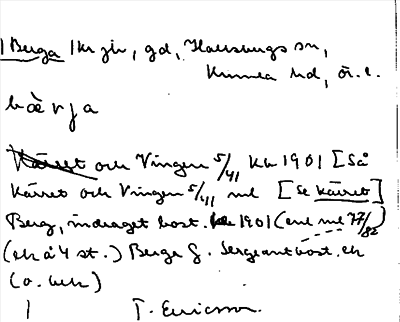 Berga 1 kr jb, gd, Hallsbergs sn,
Kumla hd, Ör. l.
bærja
Kärret och Vingen 5/41 kb 1901 [Så
Kärret och Vingen 5/41 ml [Se Kärret]
Berg, indraget bost. 1901 (enl ml 77/82)
(ek å 4 st.) Berga G. Sergeantbost. ek
(o. bek)
T. Ericsson.